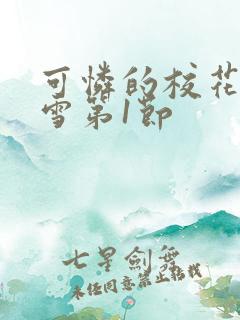 可憐的校花
雪第1節
七星劍舞
未经同意禁止转载